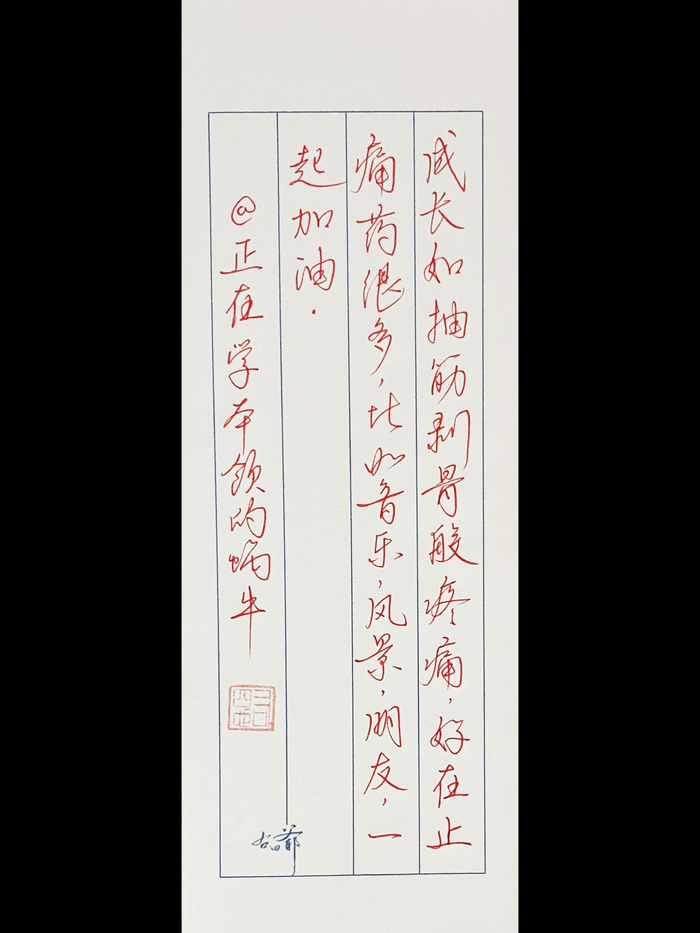 成长如抽筋剥骨般疼痛，好在止
痛药很多，比如音乐，风景，朋友，一
起加油．
@正在学本领的蜗牛